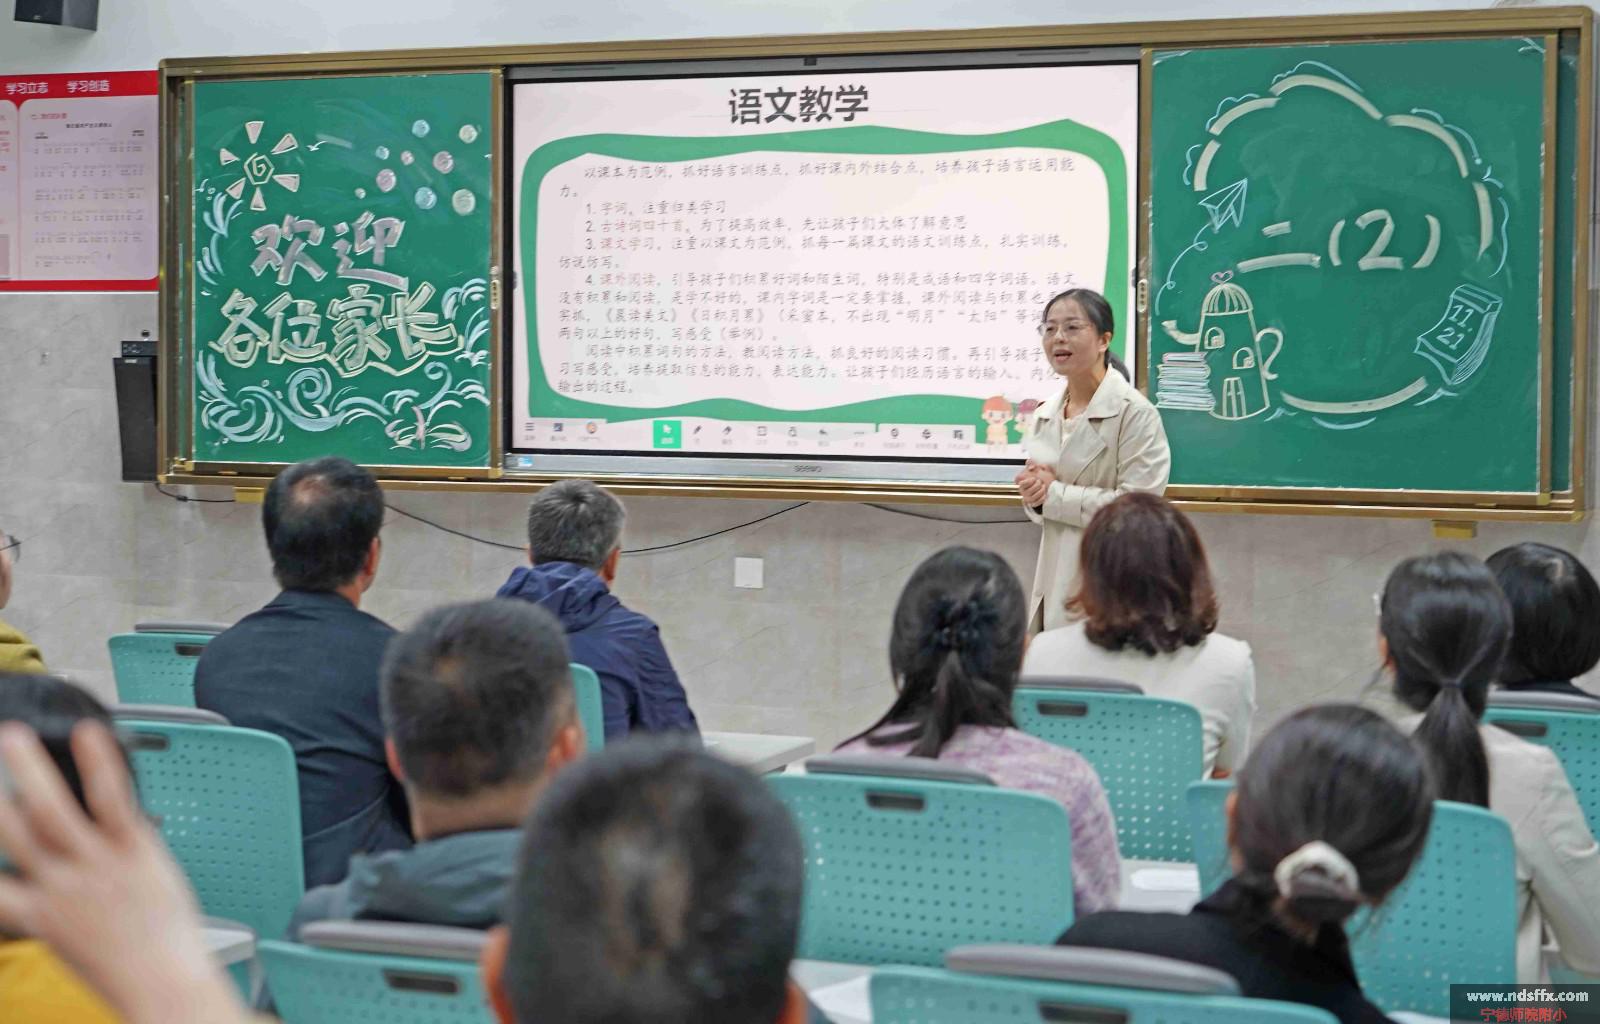 学习立志 学习创造
欢迎
各位家长
语文教学
以课本为范例，抓好语言训练点，抓好课内外结合点，培养孩子语言运用能
力。
1. 字词，注重归类学习
2. 古诗词四十首，为了提高效率，先让孩子们大体了解意思
3. 课文学习，注重以课文为范例，抓每一篇课文的语文训练点，扎实训练，
仿说仿写。
4. 课外阅读，引导孩子们积累好词和陌生词，特别是成语和四字词语。语文
没有积累和阅读，是学不好的，课内字词是一定要掌握，课外阅读与积累也
实抓，《晨读美文》《日积月累》（采蜜本，不出现“明月”“太阳”等词
两句以上的好句，写感受（举例）。
阅读中积累词句的方法，教阅读方法，抓良好的阅读习惯。再引导孩子
习写感受，培养提取信息的能力，表达能力。让孩子们经历语言的输入、内
输出的过程。
seewo
二（2）
11
21
www.ndsffx.com
宁德师院附小